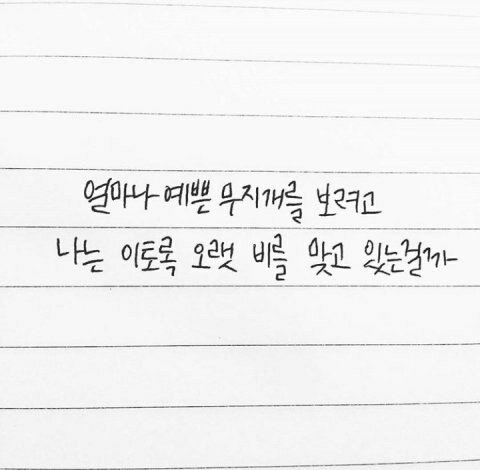 얼마나 예쁜 무지개를 보려고
나는 이토록 오랫 비를 맞고 있는걸까